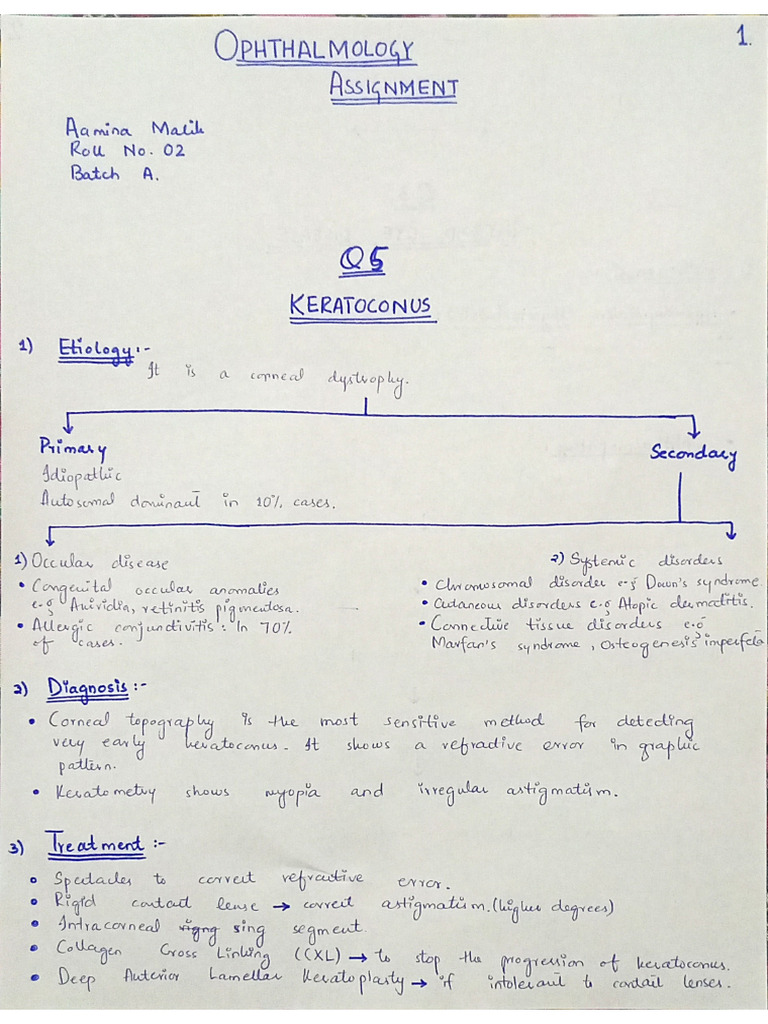 1.
OPHTHALMOLOGY
ASSIGNMENT
Aamina Malik
Roll No. 02
Batch A.
Q5
KERATOCONUS
1) Etiology:-
It is a corneal dystrophy.
Primary
Secondary
Idiopathic
Autosomal dominant in 10% cases.
1) Occular disease
• Congenital occular anomalies
e.g Aniridia, retinitis pigmentosa.
• Allergic conjundivitis: In 70%
of cases.
2) Systemic disorders
• Chromosomal disorder e.g Down's syndrome
• Cutaneous disorders e.g Atopic dermatitis.
• Connective tissue disorders e.g
Marfan's syndrome, Osteogenesis imperfeta
2) Diagnosis:-
• Corneal topography is the most sensitive method for deteding
very early keratoconus. It shows a refradive error in graphic
pattern.
• Keratometry shows myopia and irregular astigmatism.
3) Treatment:-
• Spectacles to correct refractive error.
• Rigid contact lense → correct astigmatism. (higher degrees)
• Intracorneal sing segment.
• Collagen Cross Linking (CXL) → to stop the progression of keratoconus.
• Deep Anterior Lamellar Keratoplasty → if intolerant to contact lenses.